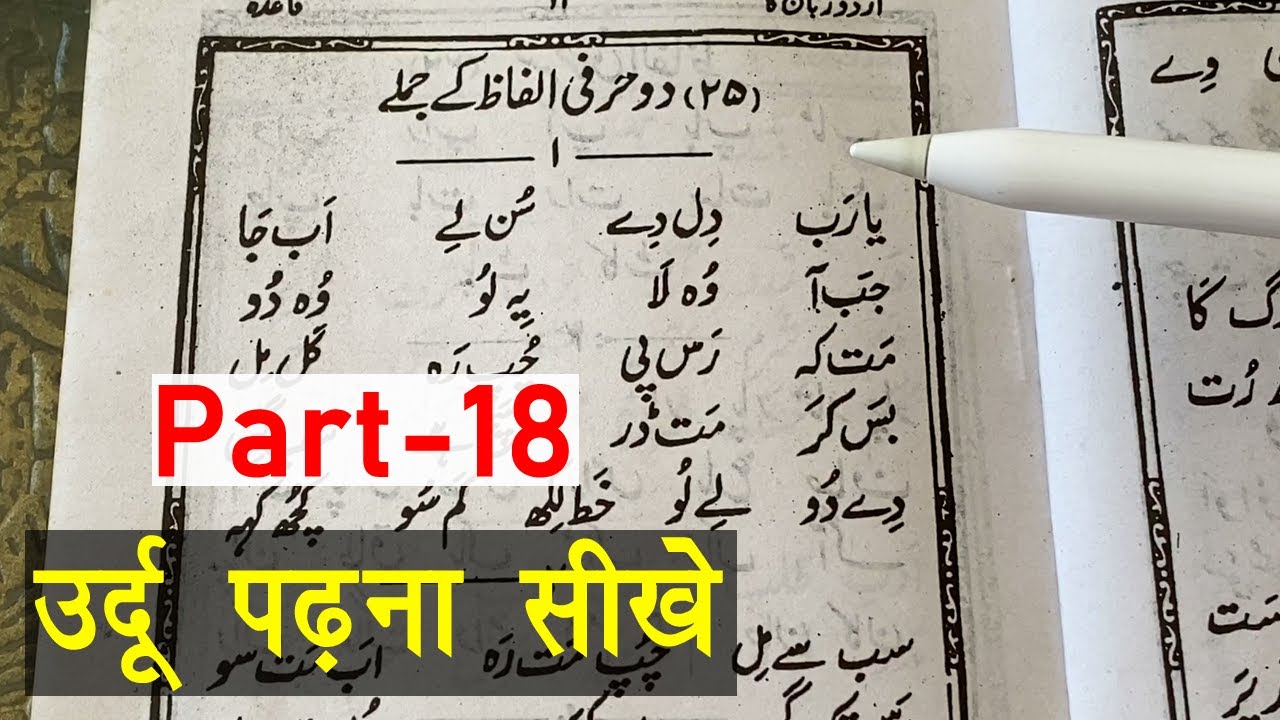 اردو زبان کا ۱۲ قاعدہ
(۲۵) دو حرفی الفاظ کے جملے
۱
یا رَب دِل دِے سُن لِے اَب جَا
جَب آ وُہ لَا یِہ لُو وُہ دُو
مَت کہ رَس پی چُپ رَہ گَل مِل
بَس کَر مَت ڈَر
دِے دُو لِے لُو خَط لِکھ کَم سَو کُچھ کہہ
سب سے مِل چُپ مَت رَہ اَب مَت سو
ی وِے
گ کَا
رُت
Part-18
उर्दू पढ़ना सीखे